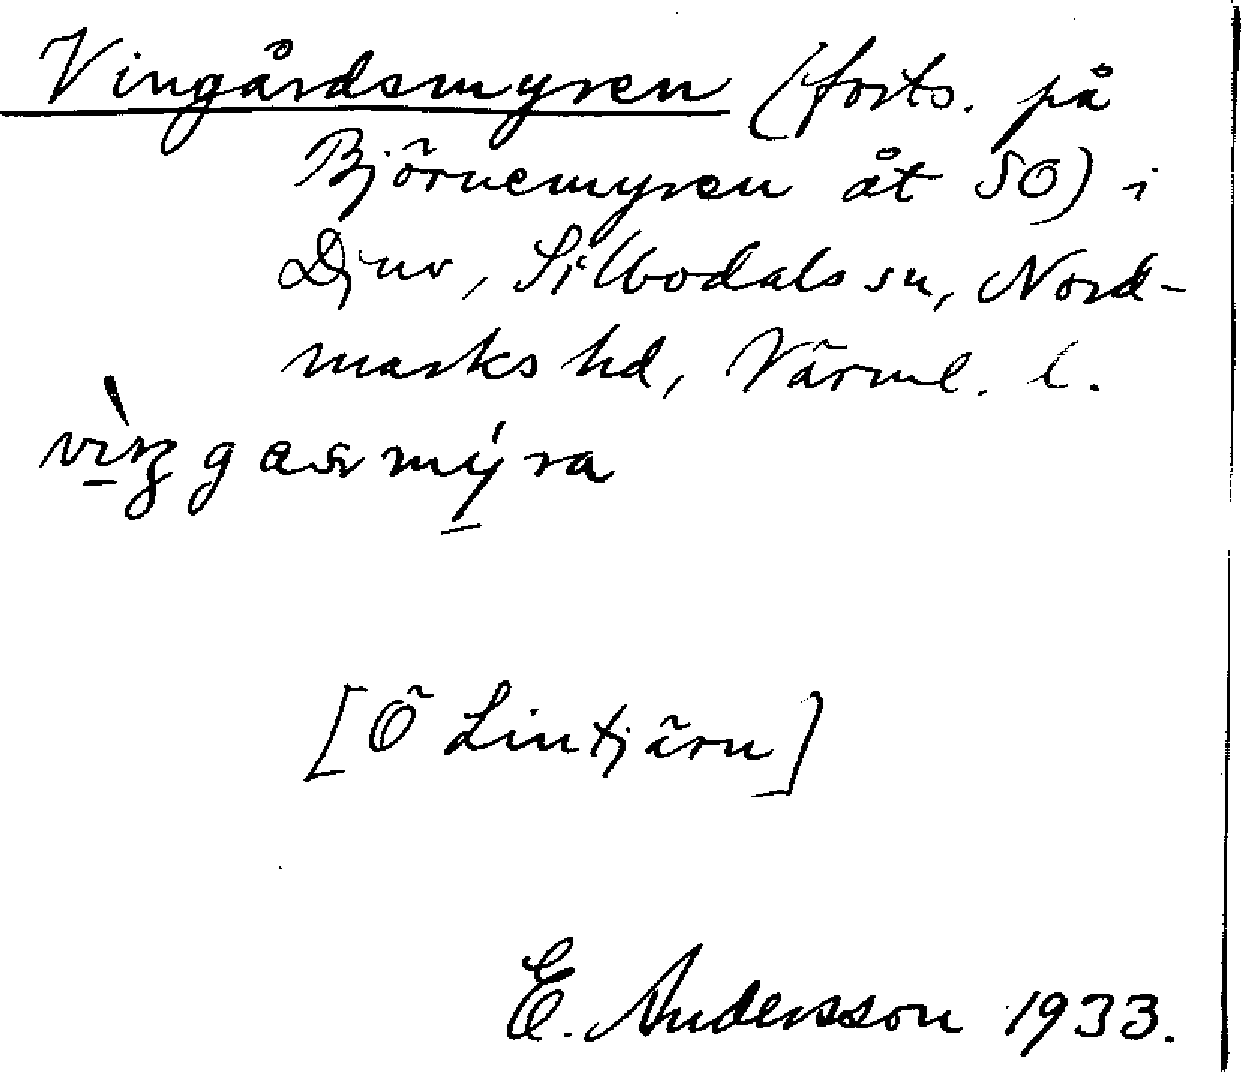 Vingårdsmyren (forts. på
Björnemyren åt SO) i
Djuv, Silbodals sn, Nord-
marks hd, Värml. l.
[Ö Lintjärn]
E. Andersson 1933.